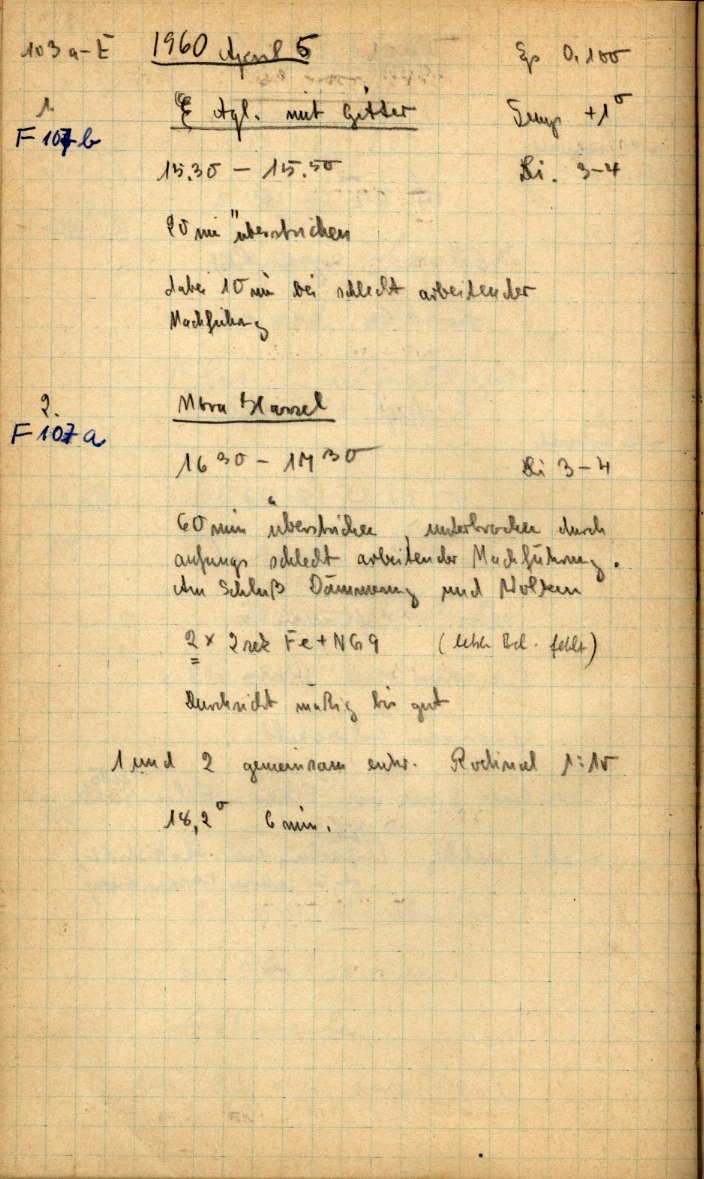 103 a-E 1960 April 5 Sp 0,100
1. ξ Aql. mit Gitter Temp +1°
F 107 b
15.30 – 15.50 Bi. 3-4
20 min überstrichen
dabei 10 min bei schlecht arbeitender
Nachführung
2. Nova Hassel
F 107 a
16 30 – 17 30 Bi 3-4
60 min überstrichen, unterbrochen durch
anfangs schlecht arbeitender Nachführung.
Am Schluß Dämmerung und Wolken
2 x 2 sek Fe + NG 9 (letzte Bel. fehlt)
Durchsicht mäßig bis gut
1 und 2 gemeinsam entw. Rodinal 1:10
18,2° 6 min.